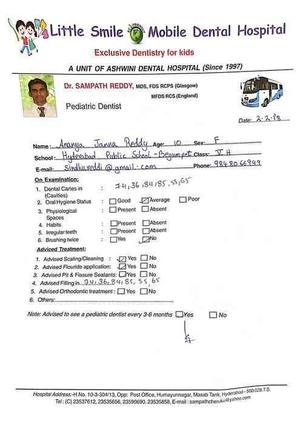 Little Smile Mobile Dental Hospital
Exclusive Dentistry for kids
A UNIT OF ASHWINI DENTAL HOSPITAL (Since 1997)
Dr. SAMPATH REDDY, MDS, FDS RCPS (Glasgow)
MFDS RCS (England)
Pediatric Dentist
Date: 2-2-18
Name: Ananya Janna Reddy Age: 10 Sex: F
School: Hyderabad Public School-Begumpet Class: V H
E-mail: sindhu.reddi@gmail.com Phone: 9848066949
On Examination:
1. Dental Caries in (Cavities) 74,36,84,85,55,65
2. Oral Hygiene Status : Good Average Poor
3. Physiological Spaces : Present Absent
4. Habits : Present Absent
5. Irregular teeth : Present Absent
6. Brushing twice : Yes No
Adviced Treatment:
1. Advised Scaling/Cleaning : Yes No
2. Advised Flouride application: Yes No
3. Advised Pit & Fissure Sealants: Yes No
4. Advised Filling in 74,36,84,85,55,65
5. Advised Orthodontic treatment : Yes No
6. Others:
Note: Advised to see a pediatric dentist every 3-6 months Yes No
Hospital Address:-H.No. 10-3-304/13, Opp: Post Office, Humayunnagar, Masab Tank, Hyderabad - 500 028.T.S.
Tel (C) 23537612, 23535656, 23590690, 23535858, E-mail: